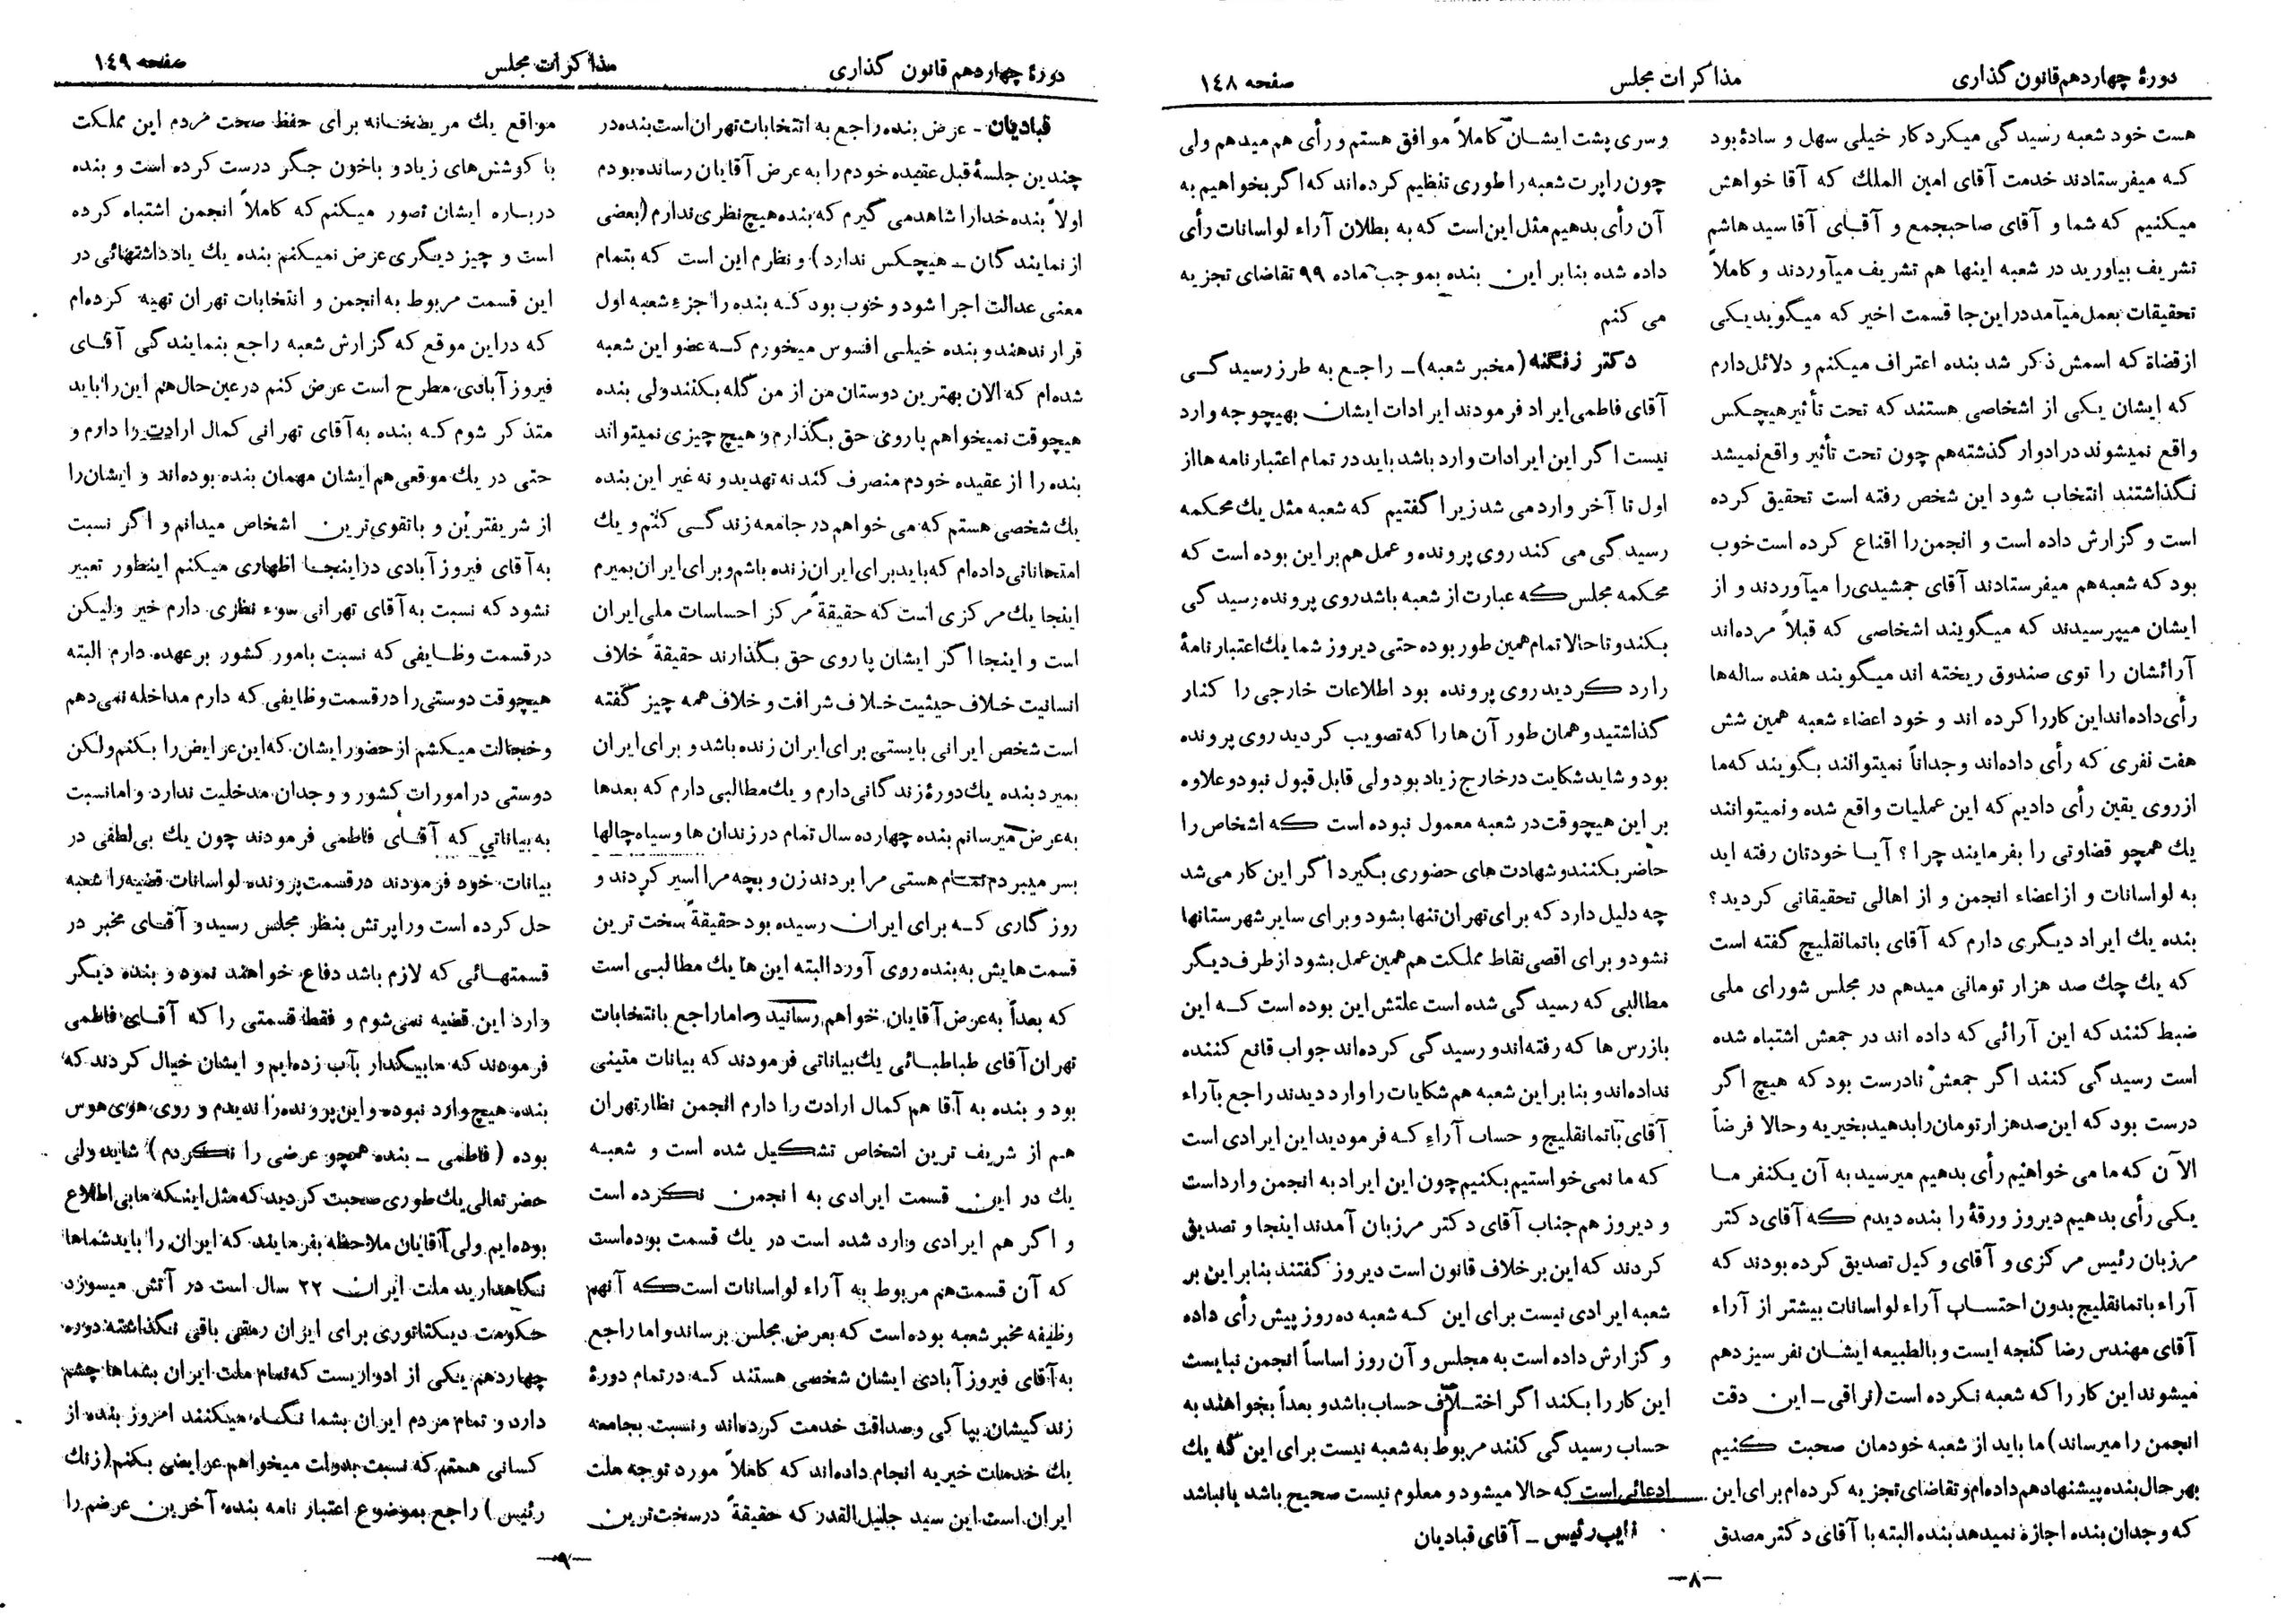 دورهٔ چهاردهم قانون گذاری
مذاکرات مجلس
صفحه ۱٤۸
هست خود شعبه رسیدگی میکرد کار خیلی سهل و سادهٔ بود
که میفرستادند خدمت آقای امین الملك که آقا خواهش
میکنیم که شما و آقای صاحبجمع و آقای آقا سید هاشم
تشریف بیاورید در شعبه اینها هم تشریف میآوردند و کاملاً
تحقیقات بعمل میآمد در این جا قسمت اخیر که میگوید یکی
از قضاة که اسمش ذکر شد بنده اعتراف میکنم و دلائل دارم
که ایشان یکی از اشخاصی هستند که تحت تأثیر هیچکس
واقع نمیشوند در ادوار گذشته هم چون تحت تأثیر واقع نمیشد
نگذاشتند انتخاب شود این شخص رفته است تحقیق کرده
است و گزارش داده است و انجمن را اقناع کرده است خوب
بود که شعبه هم میفرستادند آقای جمشیدی را میآوردند و از
ایشان میپرسیدند که میگویند اشخاصی که قبلاً مرده‌اند
آرائشان را توی صندوق ریخته اند میگویند هفده ساله‌ها
رأی داده‌اند این کار را کرده اند و خود اعضاء شعبه همین شش
هفت نفری که رأی داده‌اند وجداناً نمیتوانند بگویند که ما
از روی یقین رأی دادیم که این عملیات واقع شده و نمیتوانند
یك همچو قضاوتی را بفرمایند چرا ؟ آیا خودتان رفته اید
به لواسانات و از اعضاء انجمن و از اهالی تحقیقاتی کردید ؟
بنده یك ایراد دیگری دارم که آقای باتمانقلیچ گفته است
که یك چك صد هزار تومانی میدهم در مجلس شورای ملی
ضبط کنند که این آرائی که داده اند در جمعش اشتباه شده
است رسیدگی کنند اگر جمعش نادرست بود که هیچ اگر
درست بود که این صد هزار تومان را بدهید بخیریه و حالا فرضاً
الآن که ما می خواهیم رأی بدهیم میرسید به آن یکنفر ما
یکی رأی بدهیم دیروز ورقهٔ را بنده دیدم که آقای دکتر
مرزبان رئیس مرکزی و آقای وکیل تصدیق کرده بودند که
آراء باتمانقلیچ بدون احتساب آراء لواسانات بیشتر از آراء
آقای مهندس رضا گنجه ایست و بالطبیعه ایشان نفر سیزدهم
میشوند این کار را که شعبه نکرده است (نراقی ـ این دقت
انجمن را میرساند) ما باید از شعبه خودمان صحبت کنیم
بهر حال بنده پیشنهاد هم داده‌ام و تقاضای تجزیه کرده‌ام برای این
که وجدان بنده اجازه نمیدهد بنده البته با آقای دکتر مصدق
و سری پشت ایشان کاملاً موافق هستم و رأی هم میدهم ولی
چون راپرت شعبه را طوری تنظیم کرده‌اند که اگر بخواهیم به
آن رأی بدهیم مثل این است که به بطلان آراء لواسانات رأی
داده شده بنابر این بنده بموجب ماده ۹۹ تقاضای تجزیه
می کنم
دکتر زنگنه (مخبر شعبه) ـ راجع به طرز رسیدگی
آقای فاطمی ایراد فرمودند ایرادات ایشان بهیچوجه وارد
نیست اگر این ایرادات وارد باشد باید در تمام اعتبارنامه ها از
اول تا آخر وارد می شد زیرا گفتیم که شعبه مثل یك محکمه
رسیدگی می کند روی پرونده و عمل هم بر این بوده است که
محکمه مجلس که عبارت از شعبه باشد روی پرونده رسیدگی
بکند و تا حالا تمام همین طور بوده حتی دیروز شما یك اعتبارنامهٔ
را رد کردید روی پرونده بود اطلاعات خارجی را کنار
گذاشتید و همان طور آن ها را که تصویب کردید روی پرونده
بود و شاید شکایت در خارج زیاد بود ولی قابل قبول نبود و علاوه
بر این هیچوقت در شعبه معمول نبوده است که اشخاص را
حاضر بکنند و شهادت های حضوری بگیرد اگر این کار می‌شد
چه دلیل دارد که برای تهران تنها بشود و برای سایر شهرستانها
نشود و برای اقصی نقاط مملکت هم همین عمل بشود از طرف دیگر
مطالبی که رسیدگی شده است علتش این بوده است که این
بازرس ها که رفته‌اند و رسیدگی کرده‌اند جواب قانع کننده
نداده‌اند و بنابر این شعبه هم شکایات را وارد دیدند راجع بآراء
آقای باتمانقلیچ و حساب آراء که فرمودید این ایرادی است
که ما نمی خواستیم بکنیم چون این ایراد به انجمن وارد است
و دیروز هم جناب آقای دکتر مرزبان آمدند اینجا و تصدیق
کردند که این بر خلاف قانون است دیروز گفتند بنابر این بر
شعبه ایرادی نیست برای این که شعبه ده روز پیش رأی داده
و گزارش داده است به مجلس و آن روز اساساً انجمن نبایست
این کار را بکند اگر اختلاف حساب باشد و بعداً بخواهند به
حساب رسیدگی کنند مربوط به شعبه نیست برای این که یك
ادعائی است که حالا میشود و معلوم نیست صحیح باشد یا نباشد
نایب رئیس ـ آقای قبادیان
ـ۸ـ
دورهٔ چهاردهم قانون گذاری
مذاکرات مجلس
صفحه ۱٤۹
قبادیان ـ عرض بنده راجع به انتخابات تهران است بنده در
چندین جلسهٔ قبل عقیده خودم را به عرض آقایان رسانده بودم
اولاً بنده خدا را شاهد می گیرم که بنده هیچ نظری ندارم (بعضی
از نمایندگان ـ هیچکس ندارد) و نظرم این است که بتمام
معنی عدالت اجرا شود و خوب بود که بنده را جزء شعبه اول
قرار ندهند و بنده خیلی افسوس میخورم که عضو این شعبه
شده‌ام که الان بهترین دوستان من از من گله بکنند ولی بنده
هیچوقت نمیخواهم پا روی حق بگذارم و هیچ چیزی نمیتواند
بنده را از عقیده خودم منصرف کند نه تهدید و نه غیر این بنده
یك شخصی هستم که می خواهم در جامعه زندگی کنم و یك
امتحاناتی داده‌ام که باید برای ایران زنده باشم و برای ایران بمیرم
اینجا یك مرکزی است که حقیقةً مرکز احساسات ملی ایران
است و اینجا اگر ایشان پا روی حق بگذارند حقیقةً خلاف
انسانیت خلاف حیثیت خلاف شرافت و خلاف همه چیز گفته
است شخص ایرانی بایستی برای ایران زنده باشد و برای ایران
بمیرد بنده یك دورهٔ زندگانی دارم و یك مطالبی دارم که بعدها
به عرض میرسانم بنده چهارده سال تمام در زندان ها و سیاه چالها
بسر میبردم تمام هستی مرا بردند زن و بچه مرا اسیر کردند و
روزگاری که برای ایران رسیده بود حقیقةً سخت ترین
قسمت هایش به بنده روی آورد البته این ها یك مطالبی است
که بعداً به عرض آقایان خواهم رسانید و اما راجع بانتخابات
تهران آقای طباطبائی یك بیاناتی فرمودند که بیانات متینی
بود و بنده به آقا هم کمال ارادت را دارم انجمن نظار تهران
هم از شریف ترین اشخاص تشکیل شده است و شعبه
یك در این قسمت ایرادی به انجمن نکرده است
و اگر هم ایرادی وارد شده است در یك قسمت بوده‌است
که آن قسمت هم مربوط به آراء لواسانات است که آنهم
وظیفه مخبر شعبه بوده است که بعرض مجلس برساند و اما راجع
به آقای فیروز آبادی ایشان شخصی هستند که در تمام دورهٔ
زندگیشان بپاکی و صداقت خدمت کرده‌اند و نسبت بجامعه
یك خدمات خیریه انجام داده‌اند که کاملاً مورد توجه ملت
ایران است این سید جلیل القدر که حقیقةً در سخت ترین
مواقع یك مریضخانه برای حفظ صحت مردم این مملکت
با کوشش های زیاد و با خون جگر درست کرده است و بنده
درباره ایشان تصور میکنم که کاملاً انجمن اشتباه کرده
است و چیز دیگری عرض نمیکنم بنده یك یادداشتهائی در
این قسمت مربوط به انجمن و انتخابات تهران تهیه کرده‌ام
که در این موقع که گزارش شعبه راجع بنمایندگی آقای
فیروز آبادی مطرح است عرض کنم در عین حال هم این را باید
متذکر شوم که بنده به آقای تهرانی کمال ارادت را دارم و
حتی در یك موقعی هم ایشان مهمان بنده بوده‌اند و ایشان را
از شریفترین و باتقوی‌ترین اشخاص میدانم و اگر نسبت
به آقای فیروز آبادی در اینجا اظهاری میکنم اینطور تعبیر
نشود که نسبت به آقای تهرانی سوء نظری دارم خیر ولیکن
در قسمت وظایفی که نسبت بامور کشور بر عهده دارم البته
هیچوقت دوستی را در قسمت وظایفی که دارم مداخله نمی دهم
و خجالت میکشم از حضور ایشان که این عرایض را بکنم ولکن
دوستی در امورات کشور و وجدان مدخلیت ندارد و اما نسبت
به بیاناتی که آقای فاطمی فرمودند چون یك بی‌لطفی در
بیانات خود فرمودند در قسمت پرونده لواسانات قضیه را شعبه
حل کرده است و راپرتش بنظر مجلس رسید و آقای مخبر در
قسمتهائی که لازم باشد دفاع خواهند نمود و بنده دیگر
وارد این قضیه نمی شوم و فقط قسمتی را که آقای فاطمی
فرمودند که ما بیگدار بآب زده‌ایم و ایشان خیال کردند که
بنده هیچ وارد نبوده و این پرونده را ندیدم و روی هوی هوس
بوده (فاطمی ـ بنده همچو عرضی را نکردم) شاید ولی
حضرتعالی یك طوری صحبت کردید که مثل اینکه ما بی اطلاع
بوده‌ایم ولی آقایان ملاحظه بفرمایند که ایران را باید شماها
نگاهدارید ملت ایران ۲۲ سال است در آتش میسوزد
حکومت دیکتاتوری برای ایران رمقی باقی نگذاشته دوره
چهاردهم یکی از ادواریست که تمام ملت ایران بشماها چشم
دارد و تمام مردم ایران بشما نگاه میکنند امروز بنده از
کسانی هستم که نسبت بدولت میخواهم عرایضی بکنم (زنك
رئیس) راجع بموضوع اعتبار نامه بنده آخرین عرضم را
ـ۹ـ